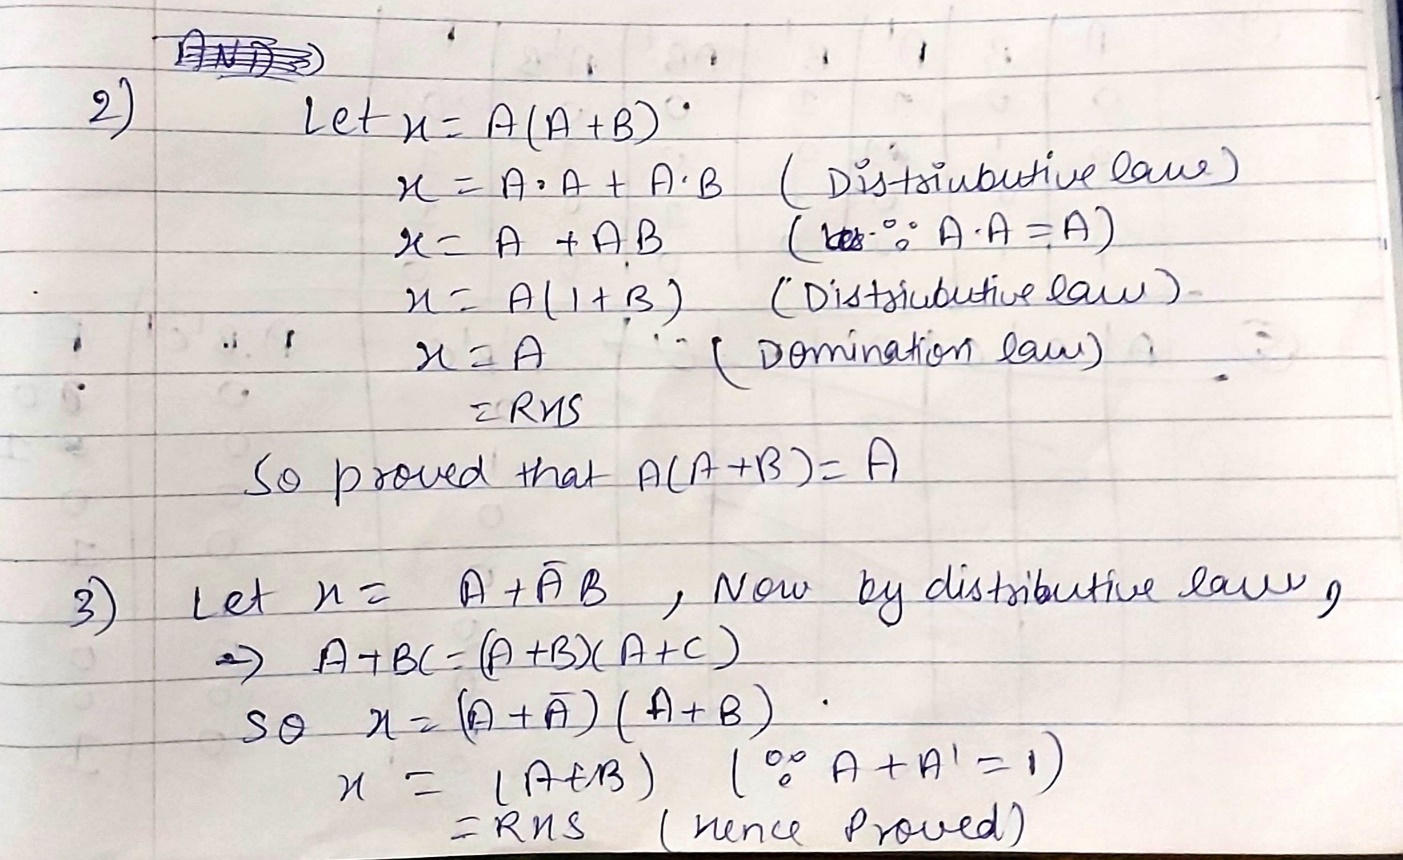 AND
2) Let x = A(A+B)
x = A·A + A·B (Distributive law)
x = A + AB (∵ A·A = A)
x = A(1+B) (Distributive law)
x = A (Domination law)
= RHS
So proved that A(A+B) = A
3) Let x = A + ĀB , Now by distributive law,
⇒ A+BC = (A+B)(A+C)
SO x = (A+Ā)(A+B)
x = (A+B) (∵ A+A' = 1)
= RHS (hence Proved)